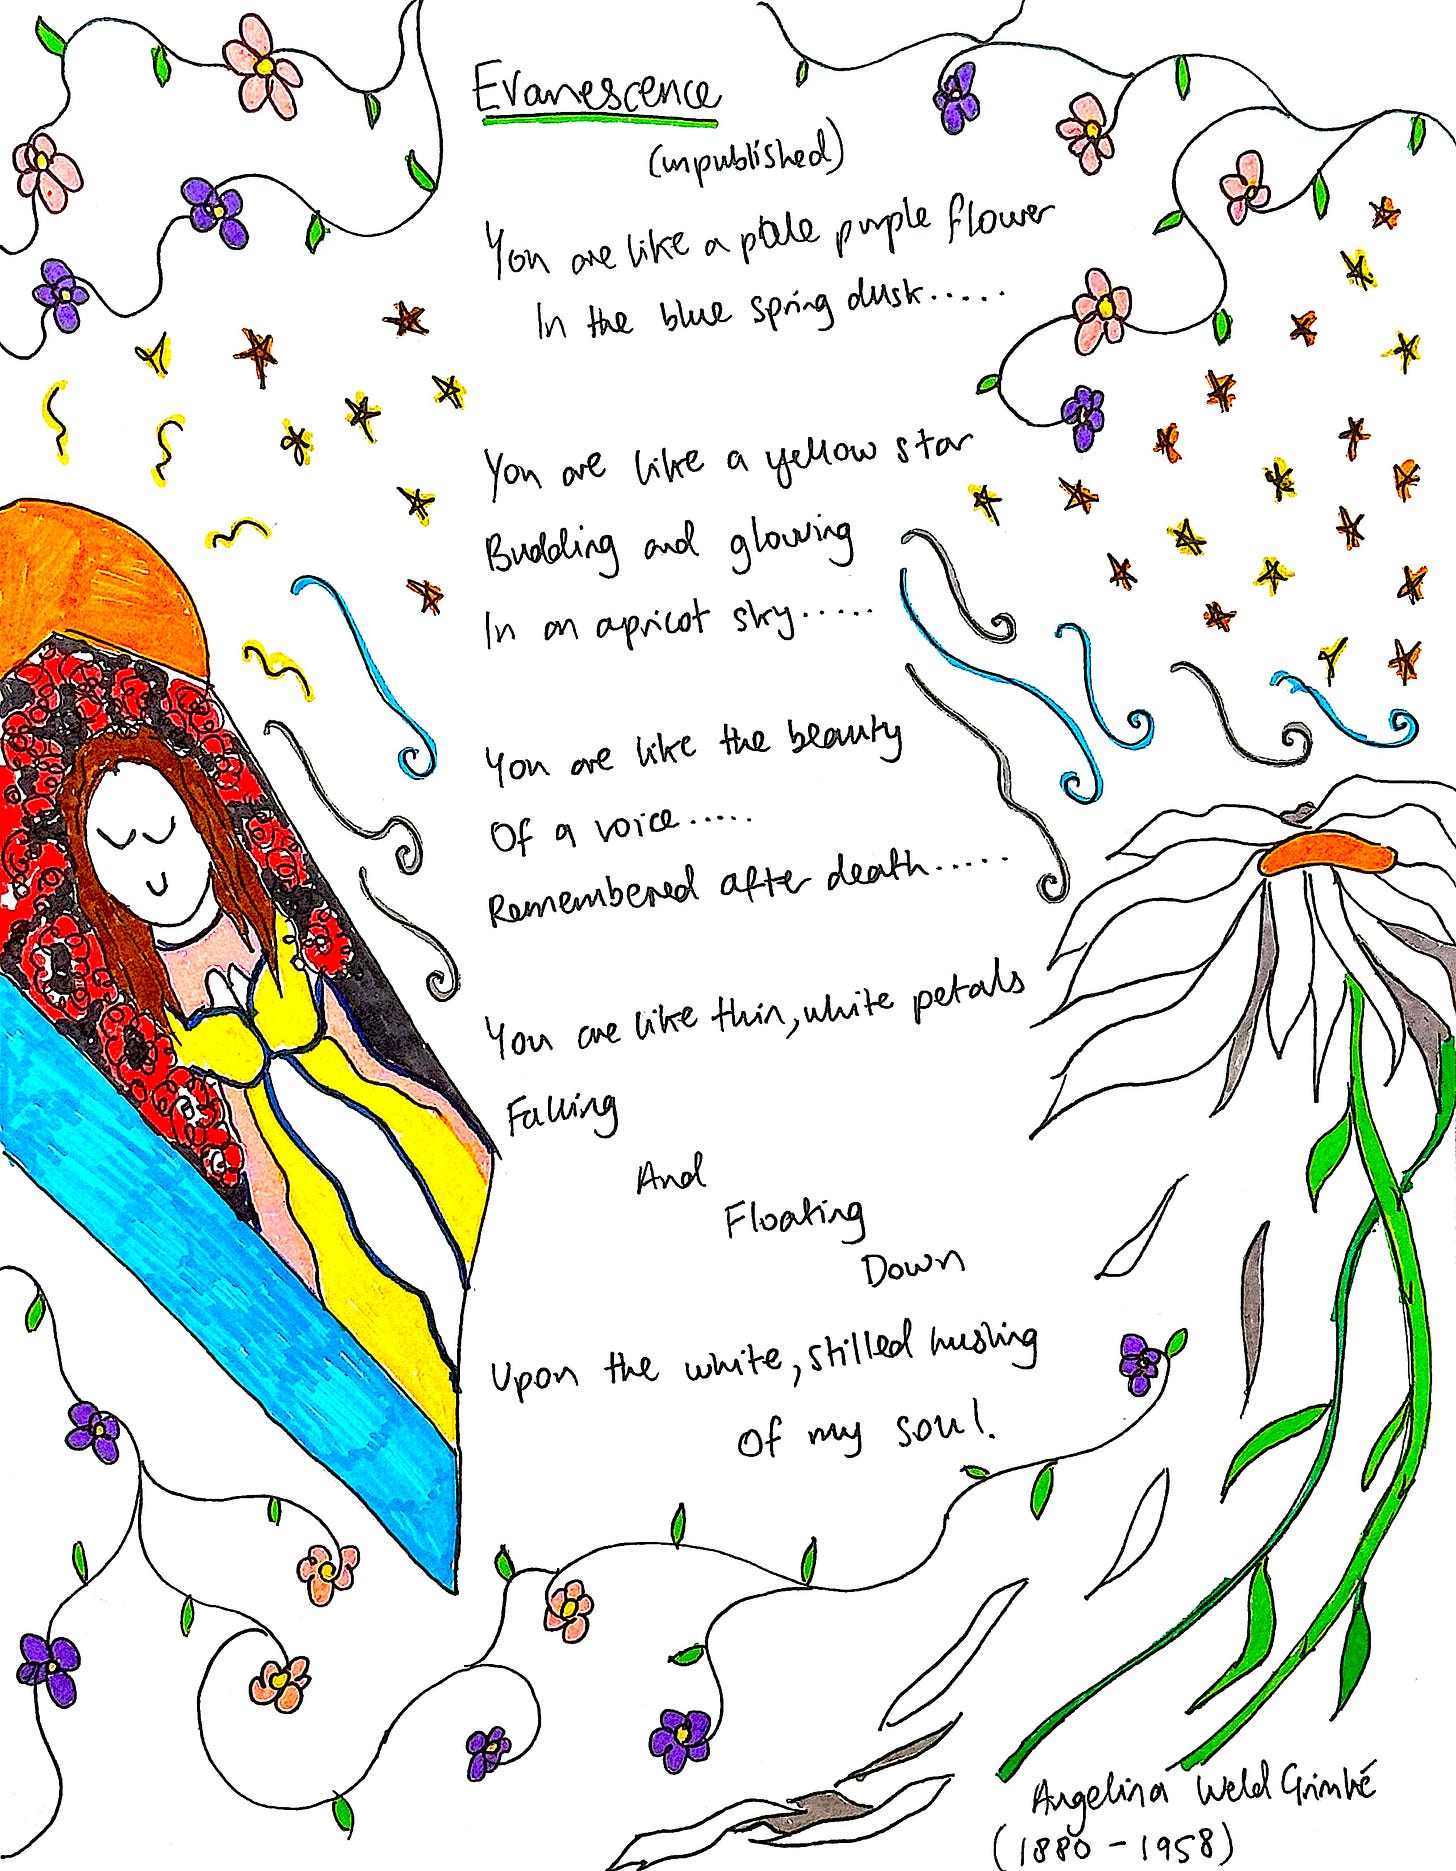 Evanescence
(unpublished)
You are like a pale purple flower
In the blue spring dusk.....
You are like a yellow star
Budding and glowing
In an apricot sky.....
You are like the beauty
Of a voice.....
Remembered after death.....
You are like thin, white petals
Falling
And
Floating
Down
Upon the white, stilled hushing
Of my soul.
Angelina Weld Grimké
(1880-1958)